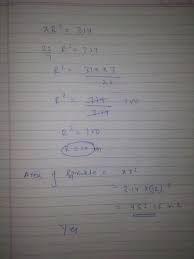 πR² = 314
22/7 R² = 314
R² = 314 × 7 / 22
R² = 314 / 3.14 100
R² = 100
R = 10 m
Area of Sprinkle = πr²
= 3.14 × (12)²
= 452.16 m²
Yes